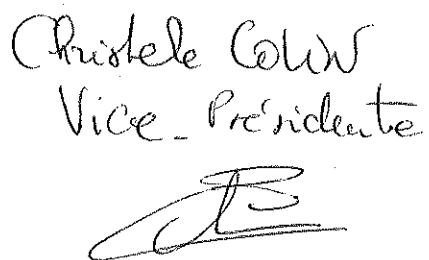 Christele COLIN
Vice-Présidente